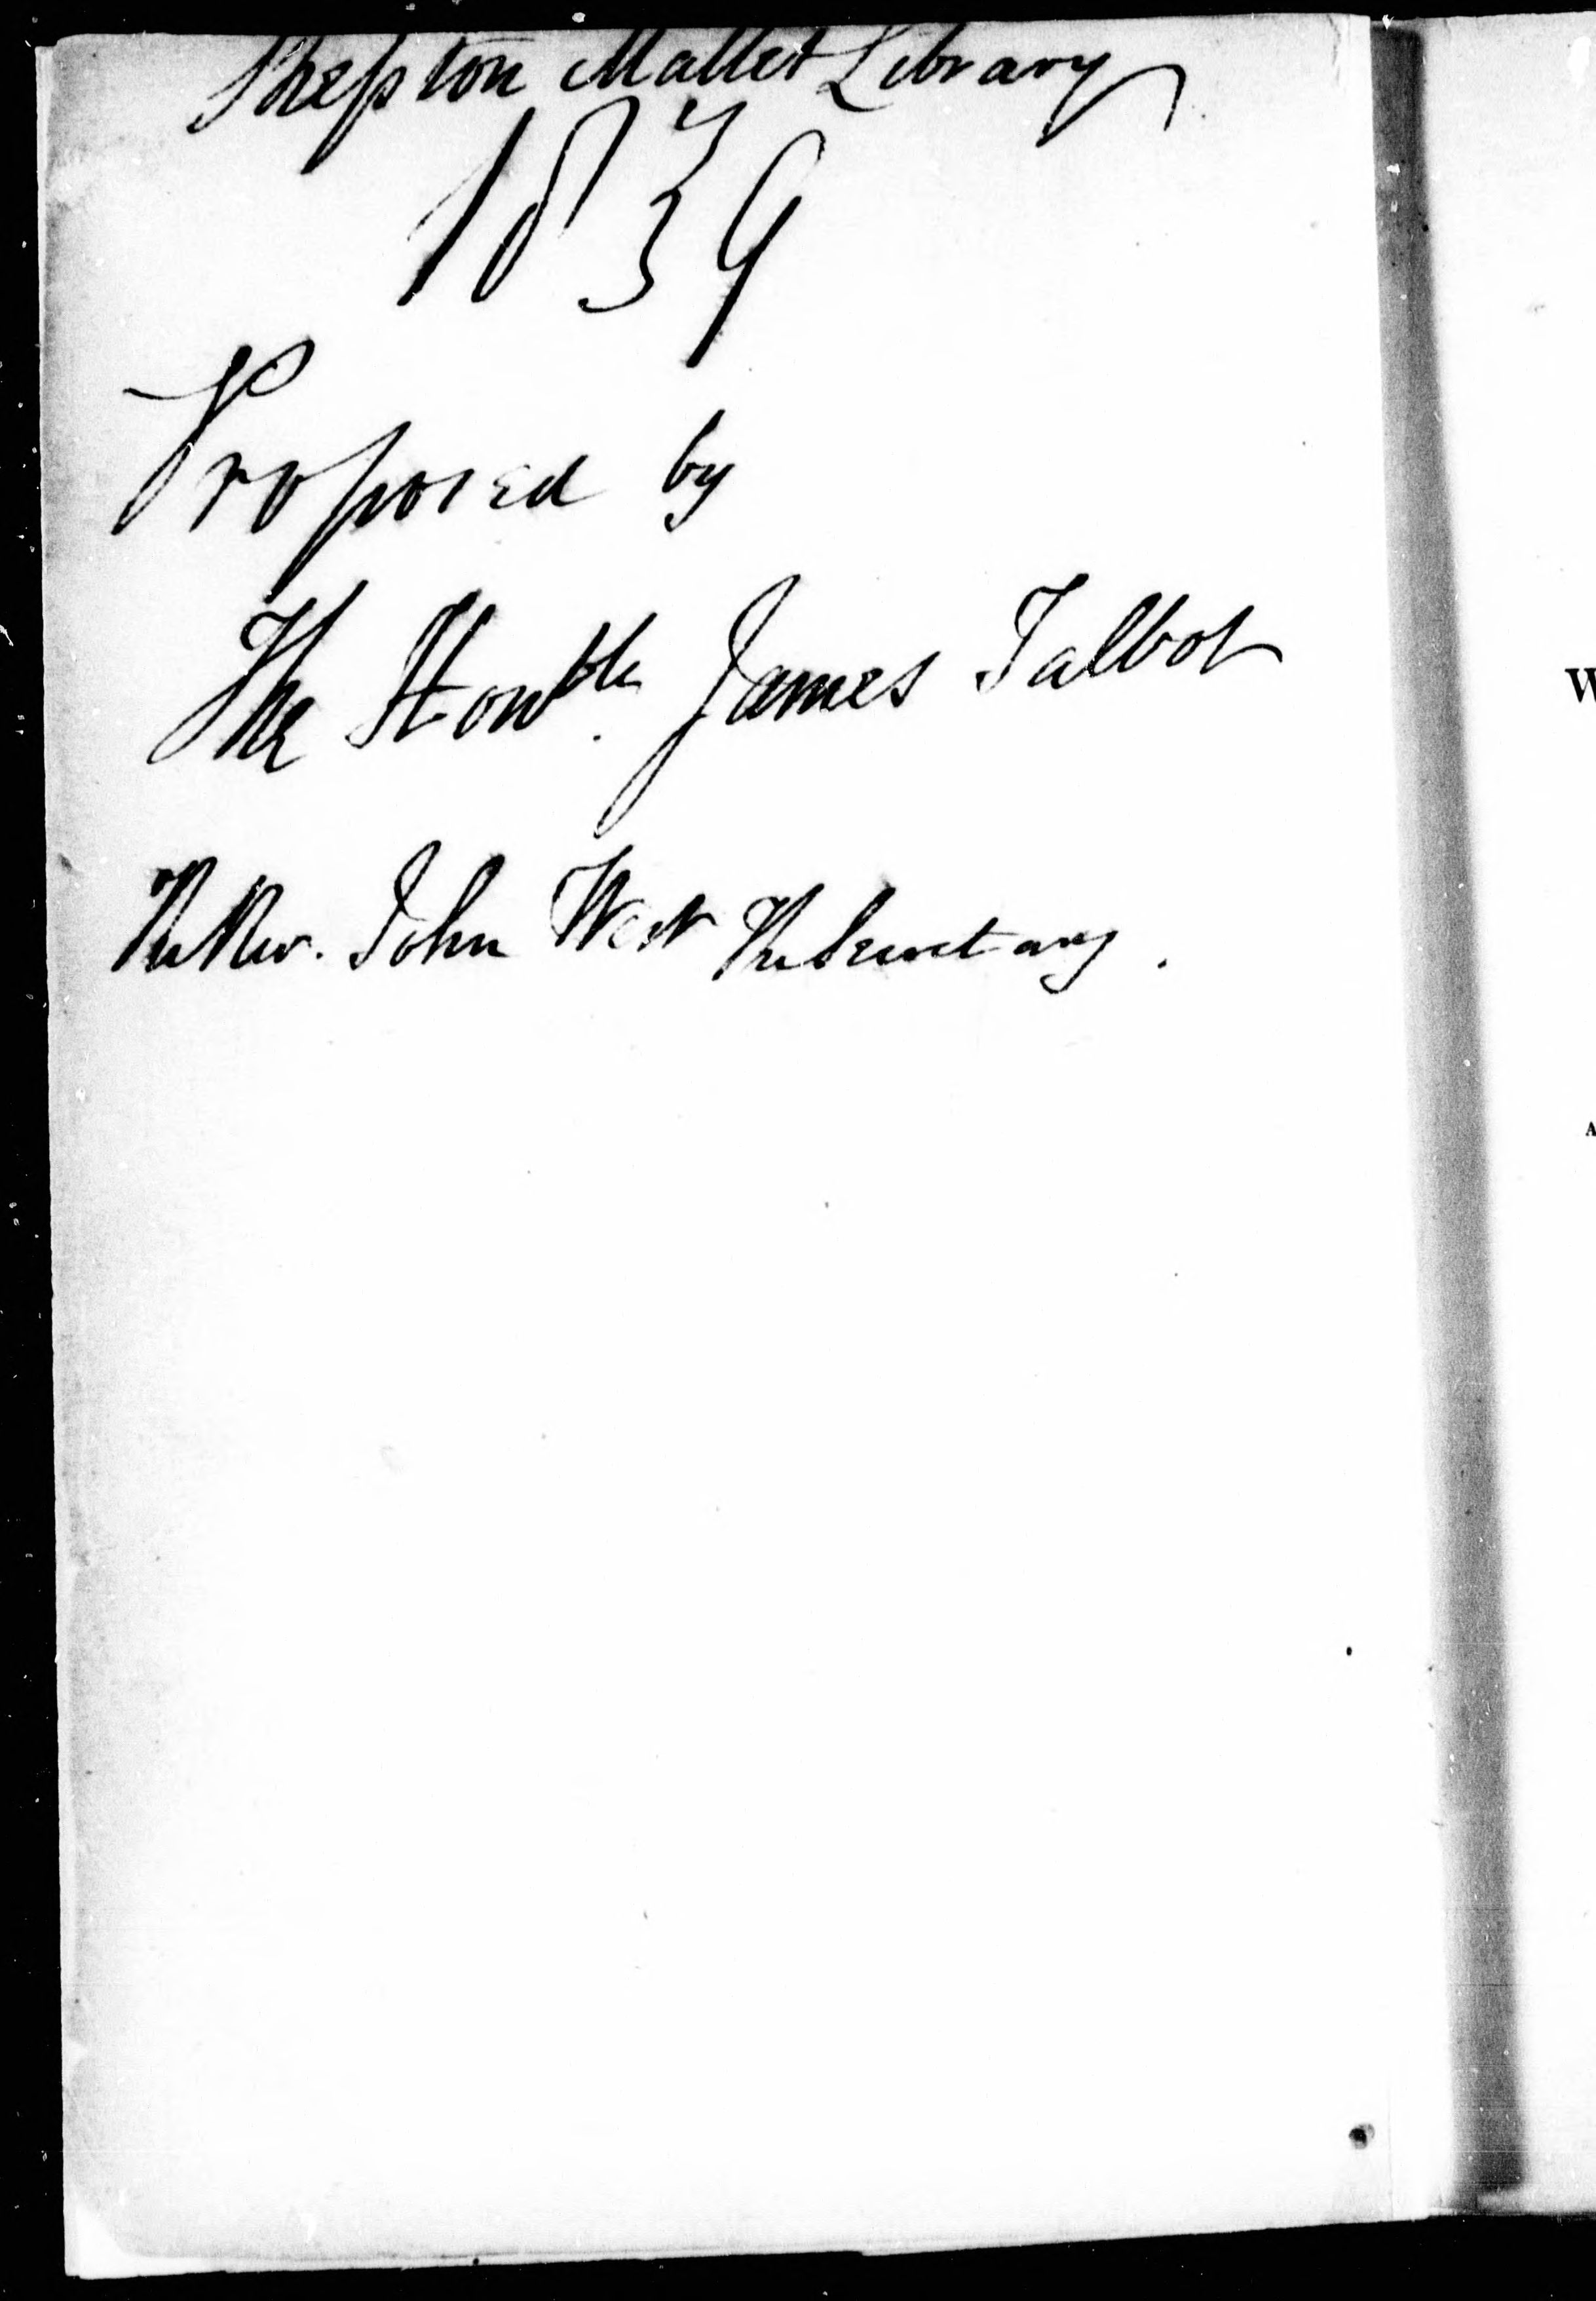 Shepton Mallet Library
1839
Proposed by
The Honble. James Talbot
The Rev. John West The Secretary.
W
A